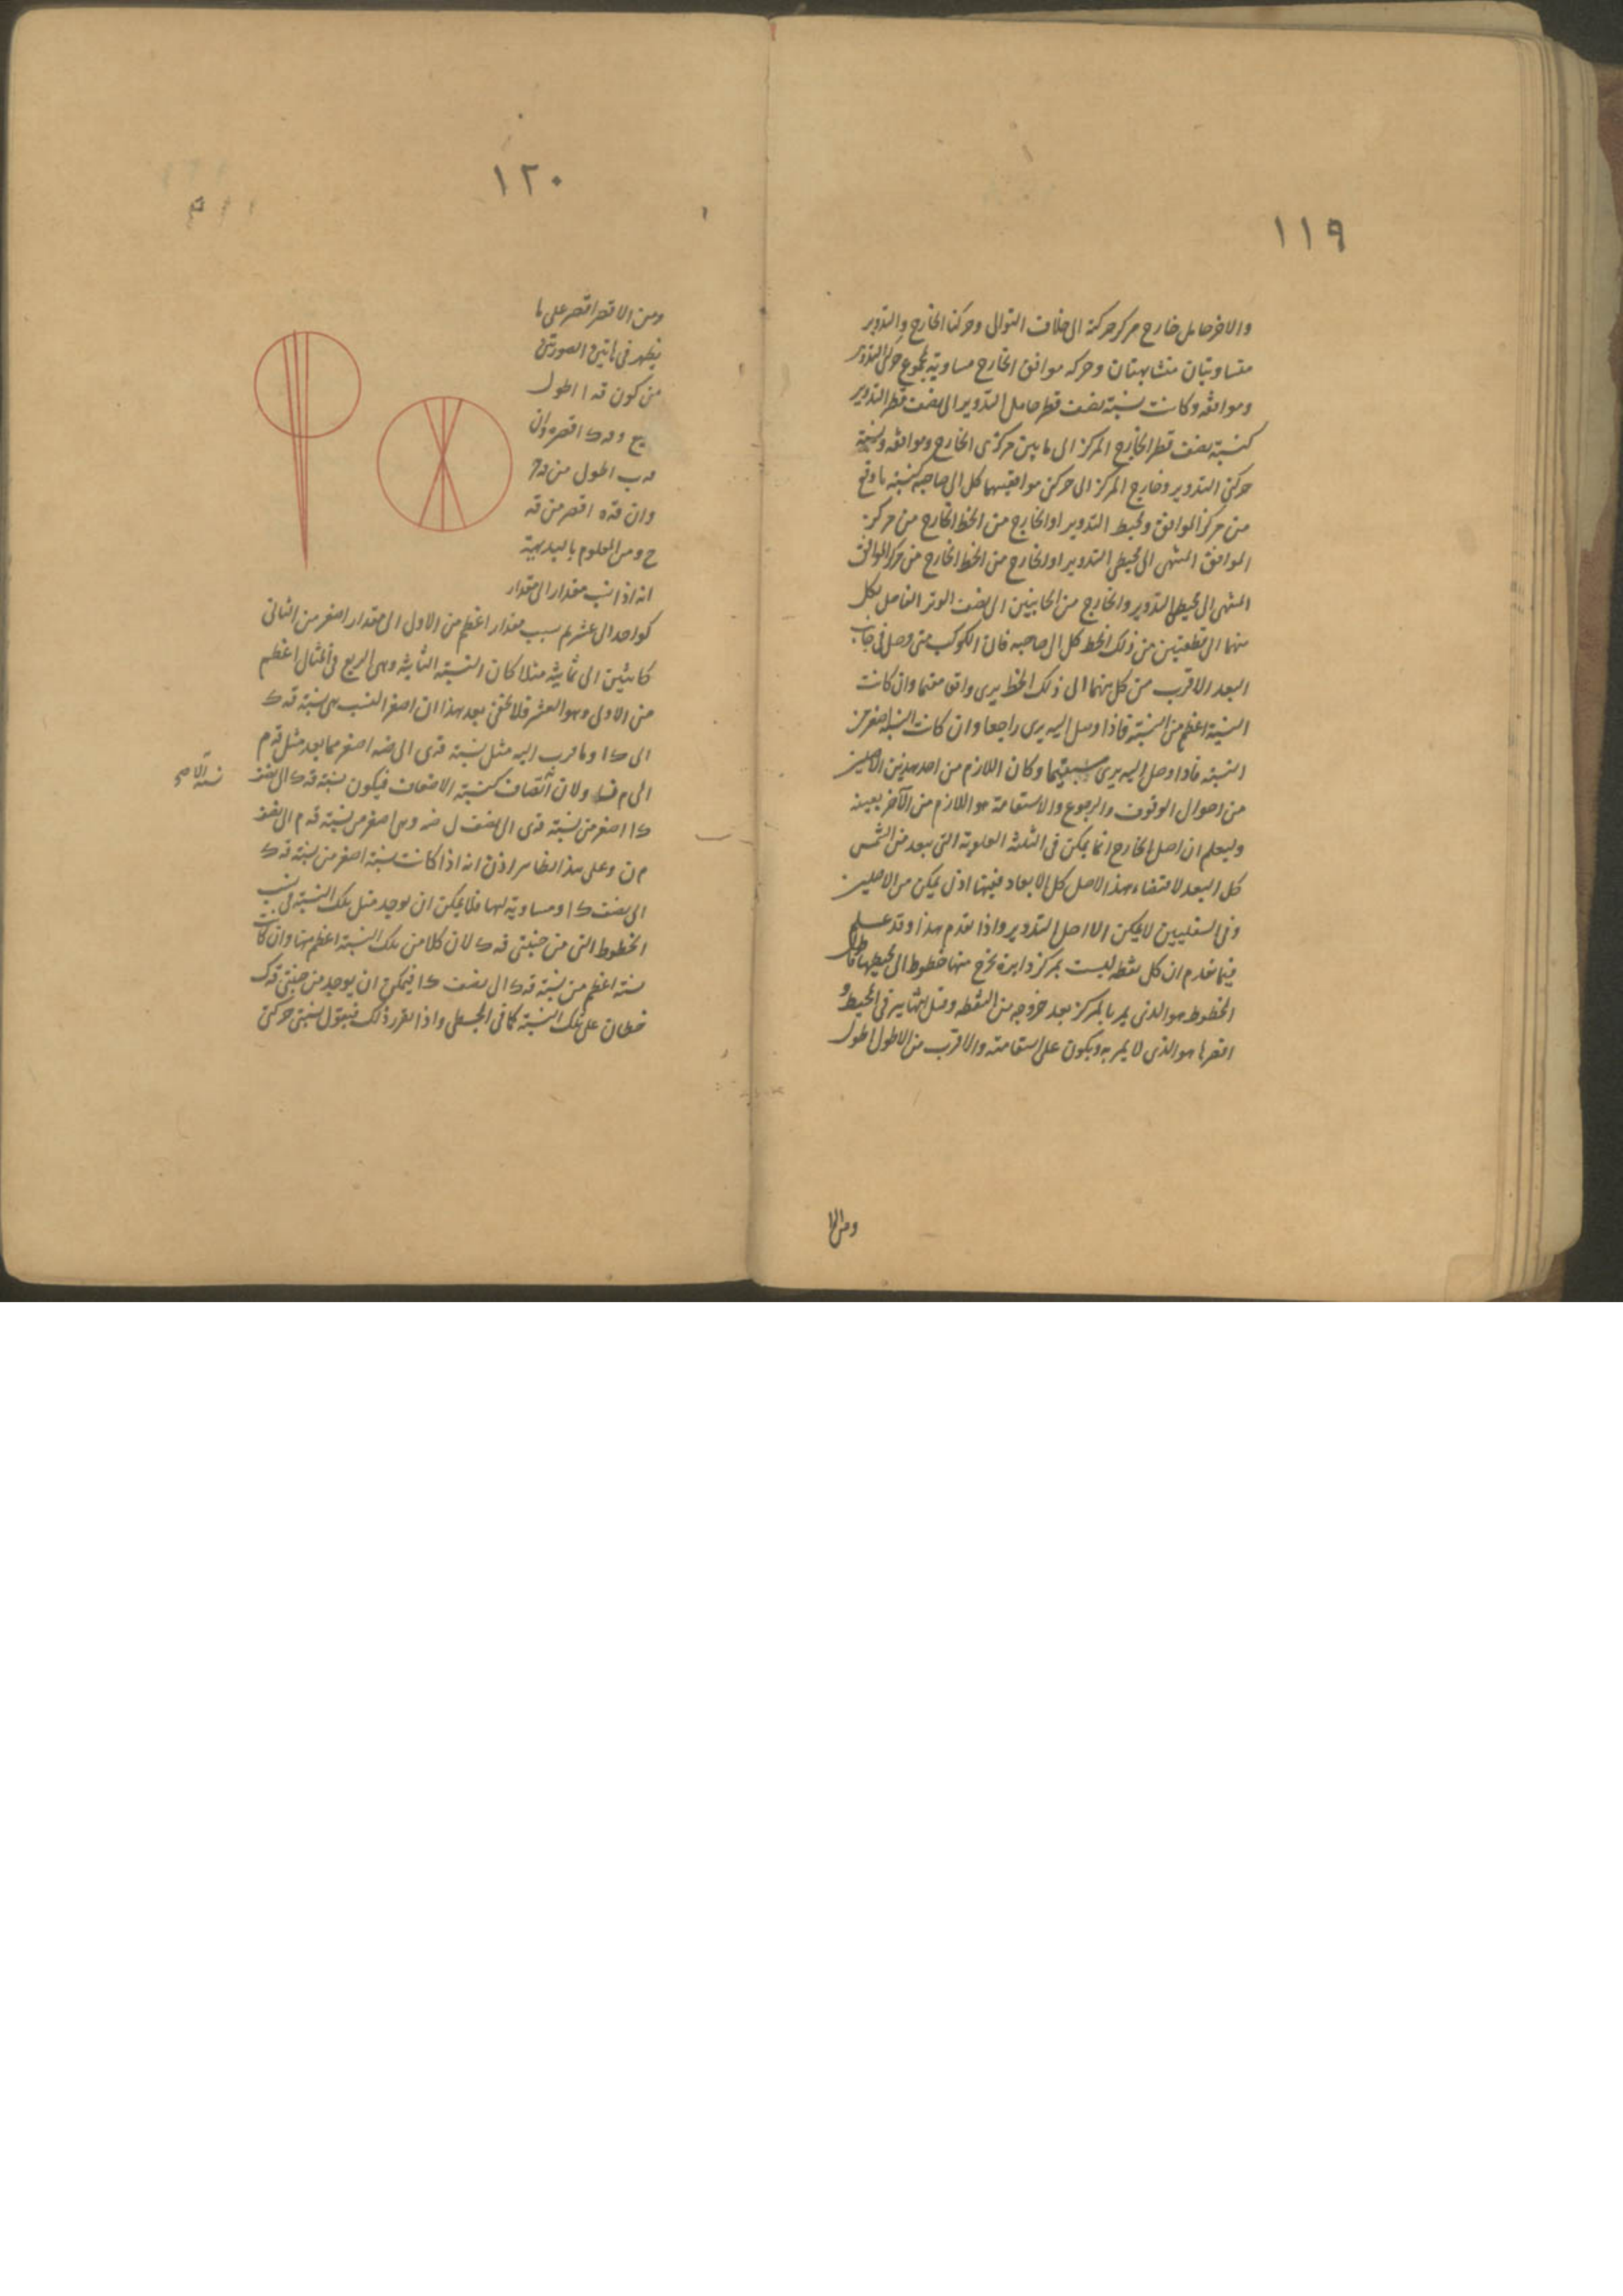 ١١٩
والاخر حامل خارج مركز حركته الى خلاف التوالى وحركتا الخارج والتدوير
متساويتان متشابهتان وحركة موافق الخارج مساوية لمجموع حركتى التدوير
وموافقه وكانت نسبة نصف قطر حامل التدوير الى نصف قطر التدوير
كنسبة نصف قطر الخارج المركز الى ما بين مركزى الخارج وموافقه ونسبة
حركتى التدوير وخارج المركز الى حركتى موافقيهما كل الى صاحبه كنسبة ما وقع
من مركز الموافق ومحيط التدوير او الخارج من الخط الخارج من مركز
الموافق المنتهى الى محيطى التدوير او الخارج من الخط الخارج من مركز الموافق
المنتهى الى محيط التدوير والخارج من الجانبين الى نصف الوتر الفاصل لكل
منهما الى قطعتين من ذلك الخط كل الى صاحبه فان الكوكب متى وصل فى جانب
البعد الاقرب من كل منهما الى ذلك الخط يرى واقفا مقيما وان كانت
النسبة اعظم من النسبة فاذا وصل اليه يرى راجعا وان كانت النسبة اصغر من
النسبة فاذا وصل اليه يرى مستقيما وكان اللازم من احد هذين الاصلين
من احوال الوقوف والرجوع والاستقامة هو اللازم من الآخر بعينه
وليعلم ان اصل الخارج انما يمكن فى الثلثة العلوية التى تبعد من الشمس
كل البعد لاقتضاء هذا الاصل كل الابعاد ففيها اذن يمكن من الاصلين
وفى السفليين لا يمكن الا اصل التدوير واذا تقدم هذا وقد علم
فيما تقدم ان كل نقطة ليست بمركز دايرة تخرج منها خطوط الى محيطها فاطول
الخطوط هو الذى يمر بالمركز بعد خروجه من النقطة وقبل انتهايه فى المحيط و
اقصرها هو الذى لا يمر به ويكون على استقامته والاقرب من الاطول اطول
ومن الا
١٢٠
ومن الاقصر اقصر على ما
يظهر فى هاتين الصورتين
من كون قه ا اطول
وان قه ه اقصر من قه
ح ومن المعلوم بالبديهية
انه اذا نسب مقدار الى مقدار
كواحد الى عشر ثم نسب مقدار اعظم من الاول الى مقدار اصغر من الثانى
كاثنين الى ثمانية مثلا كان النسبة الثانية وهى الربع فى المثال اعظم
من الاولى وهو العشر فلا يخفى بعد هذا ان اصغر النسب هى نسبة قه ك
الى ك ا وما قرب اليه مثل نسبة قه ى الى ضه اصغر مما بعد مثل قه م
الى م ن ولان الانصاف كنسبة الاضعاف فيكون نسبة قه ك الى نصف
ك ا اصغر من نسبة قه ى الى نصف ل ضه وهى اصغر من نسبة قه م الى نصف
م ن وعلى هذا الظاهر اذن انه اذا كانت نسبة اصغر من نسبة قه ك
الى نصف ك ا ومساوية لها فلا يمكن ان يوجد مثل تلك النسبة فى نسب
الخطوط التى من جنبتى قه ك لان كلا من تلك النسبة اعظم منها وان كانت
نسبة اعظم من نسبة قه ك الى نصف ك ا فيمكن ان يوجد من جنبتى قه ك
خطان على تلك النسبة كما فى المجسطى واذا تقرر ذلك فنقول نسبتى حركتى